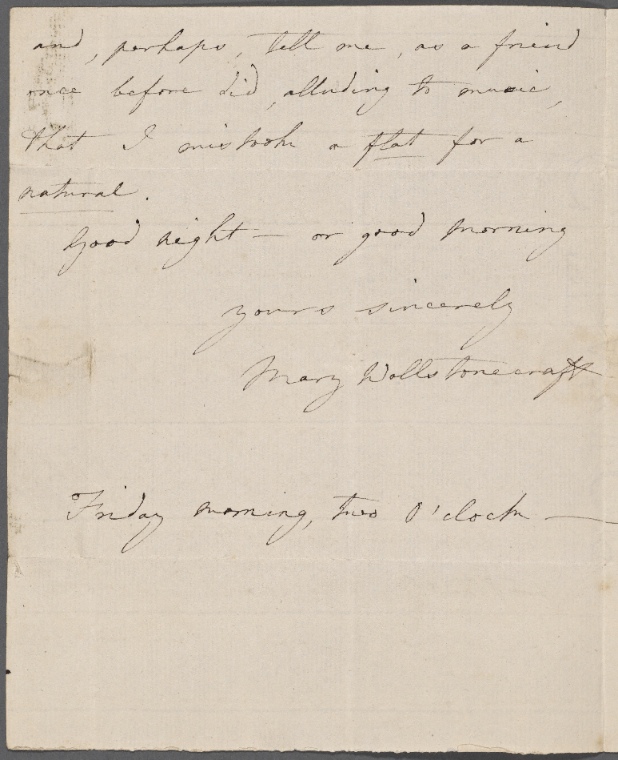 and, perhaps, tell me, as a friend
once before did, alluding to music,
that I mistook a flat for a
natural.
Good night — or good morning
yours sincerely
Mary Wollstonecraft
Friday morning, two O'clock —